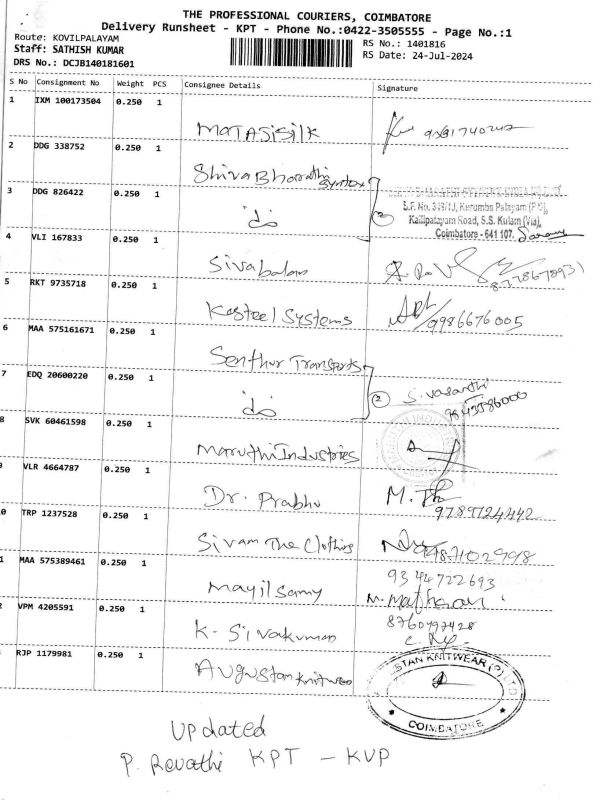 THE PROFESSIONAL COURIERS, COIMBATORE
Delivery Runsheet - KPT - Phone No.:0422-3505555 - Page No.:1
Route: KOVILPALAYAM
Staff: SATHISH KUMAR
DRS No.: DCJB140181601
RS No.: 1401816
RS Date: 24-Jul-2024
S No Consignment No Weight PCS Consignee Details Signature
1 IXM 100173504 0.250 1
MATASISILK
2 DDG 338752 0.250 1
Shiva Bharathi Syntex
3 DDG 826422 0.250 1
2
S.F. No. 349/1J, Kurumba Palayam (P.O),
Kallipalayam Road, S.S. Kulam (Via),
Coimbatore - 641 107.
4 VLI 167833 0.250 1
Sivabalan
5 RKT 9735718 0.250 1
Kasteel Systems
9986676005
6 MAA 575161671 0.250 1
Senthur Transports
7 EDQ 20600220 0.250 1
2 S. Vasanthi
8 SVK 60461598 0.250 1
Maruthi Industries
9 VLR 4664787 0.250 1
Dr. Prabhu
9789724442
0 TRP 1237528 0.250 1
Sivam The Clothing
1 MAA 575389461 0.250 1
Mayil Samy
9344722693
2 VPM 4205591 0.250 1
K. Sivakumar
8760497428
RJP 1179981 0.250 1
Augustan Knitwear
STAN KNITWEAR (P) LTD
COIMBATORE
Updated
P. Revathi KPT - KVP